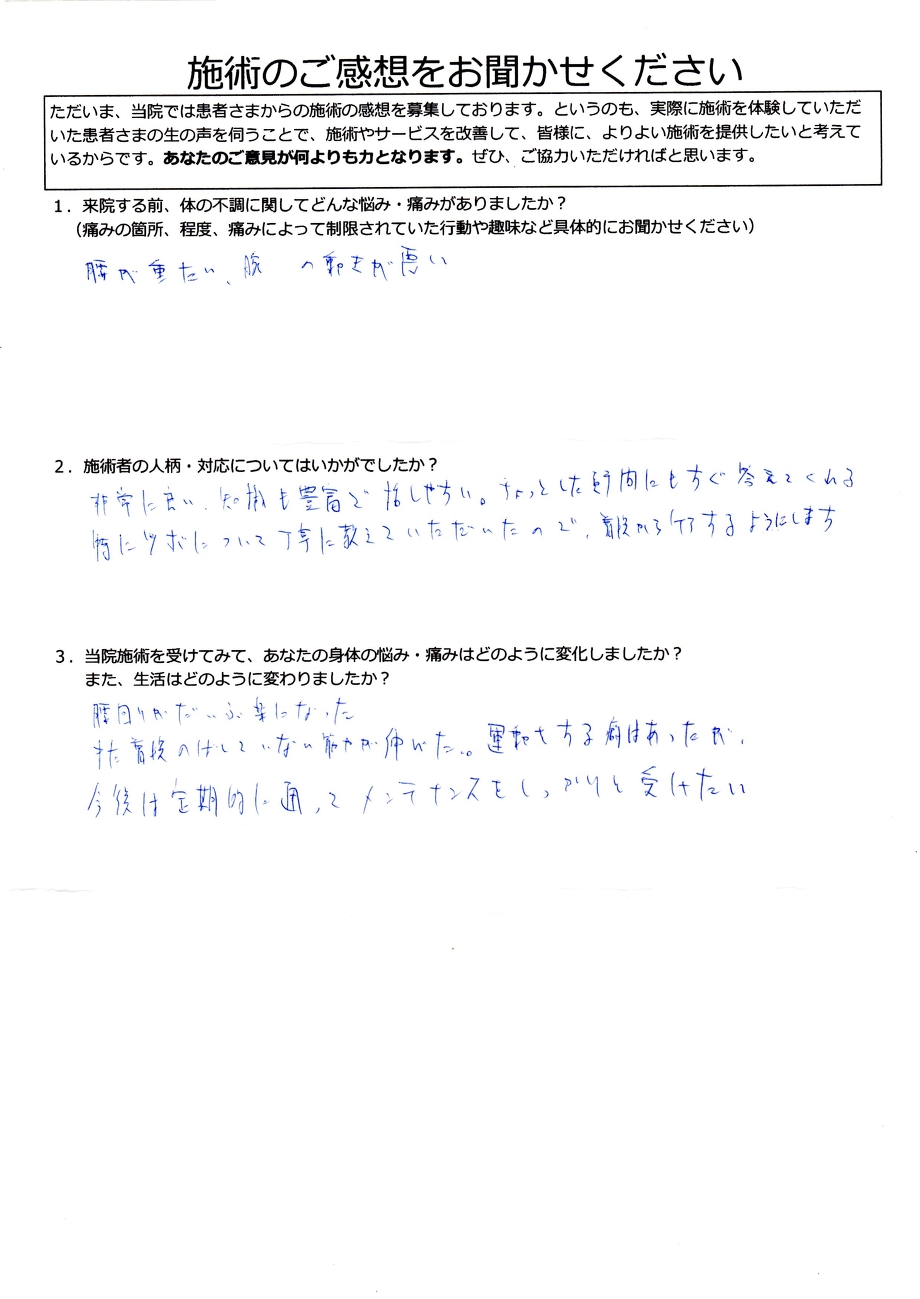 施術のご感想をお聞かせください
ただいま、当院では患者さまからの施術の感想を募集しております。というのも、実際に施術を体験していただ
いた患者さまの生の声を伺うことで、施術やサービスを改善して、皆様に、よりよい施術を提供したいと考えて
いるからです。あなたのご意見が何よりも力となります。ぜひ、ご協力いただければと思います。
1．来院する前、体の不調に関してどんな悩み・痛みがありましたか？
（痛みの箇所、程度、痛みによって制限されていた行動や趣味など具体的にお聞かせください）
腰が重たい、腕 の動きが悪い
2．施術者の人柄・対応についてはいかがでしたか？
非常に良い、知識も豊富で話しやすい。ちょっとした質問にもすぐ答えてくれる
特にツボについて丁寧に教えていただいたので、普段から するようにします
3．当院施術を受けてみて、あなたの身体の悩み・痛みはどのように変化しましたか？
また、生活はどのように変わりましたか？
腰回りがだいぶ楽になった
また普段のばしていない筋肉が伸びた。運動をする はあったが、
今後は定期的に通ってメンテナンスをしっかりと受けたい